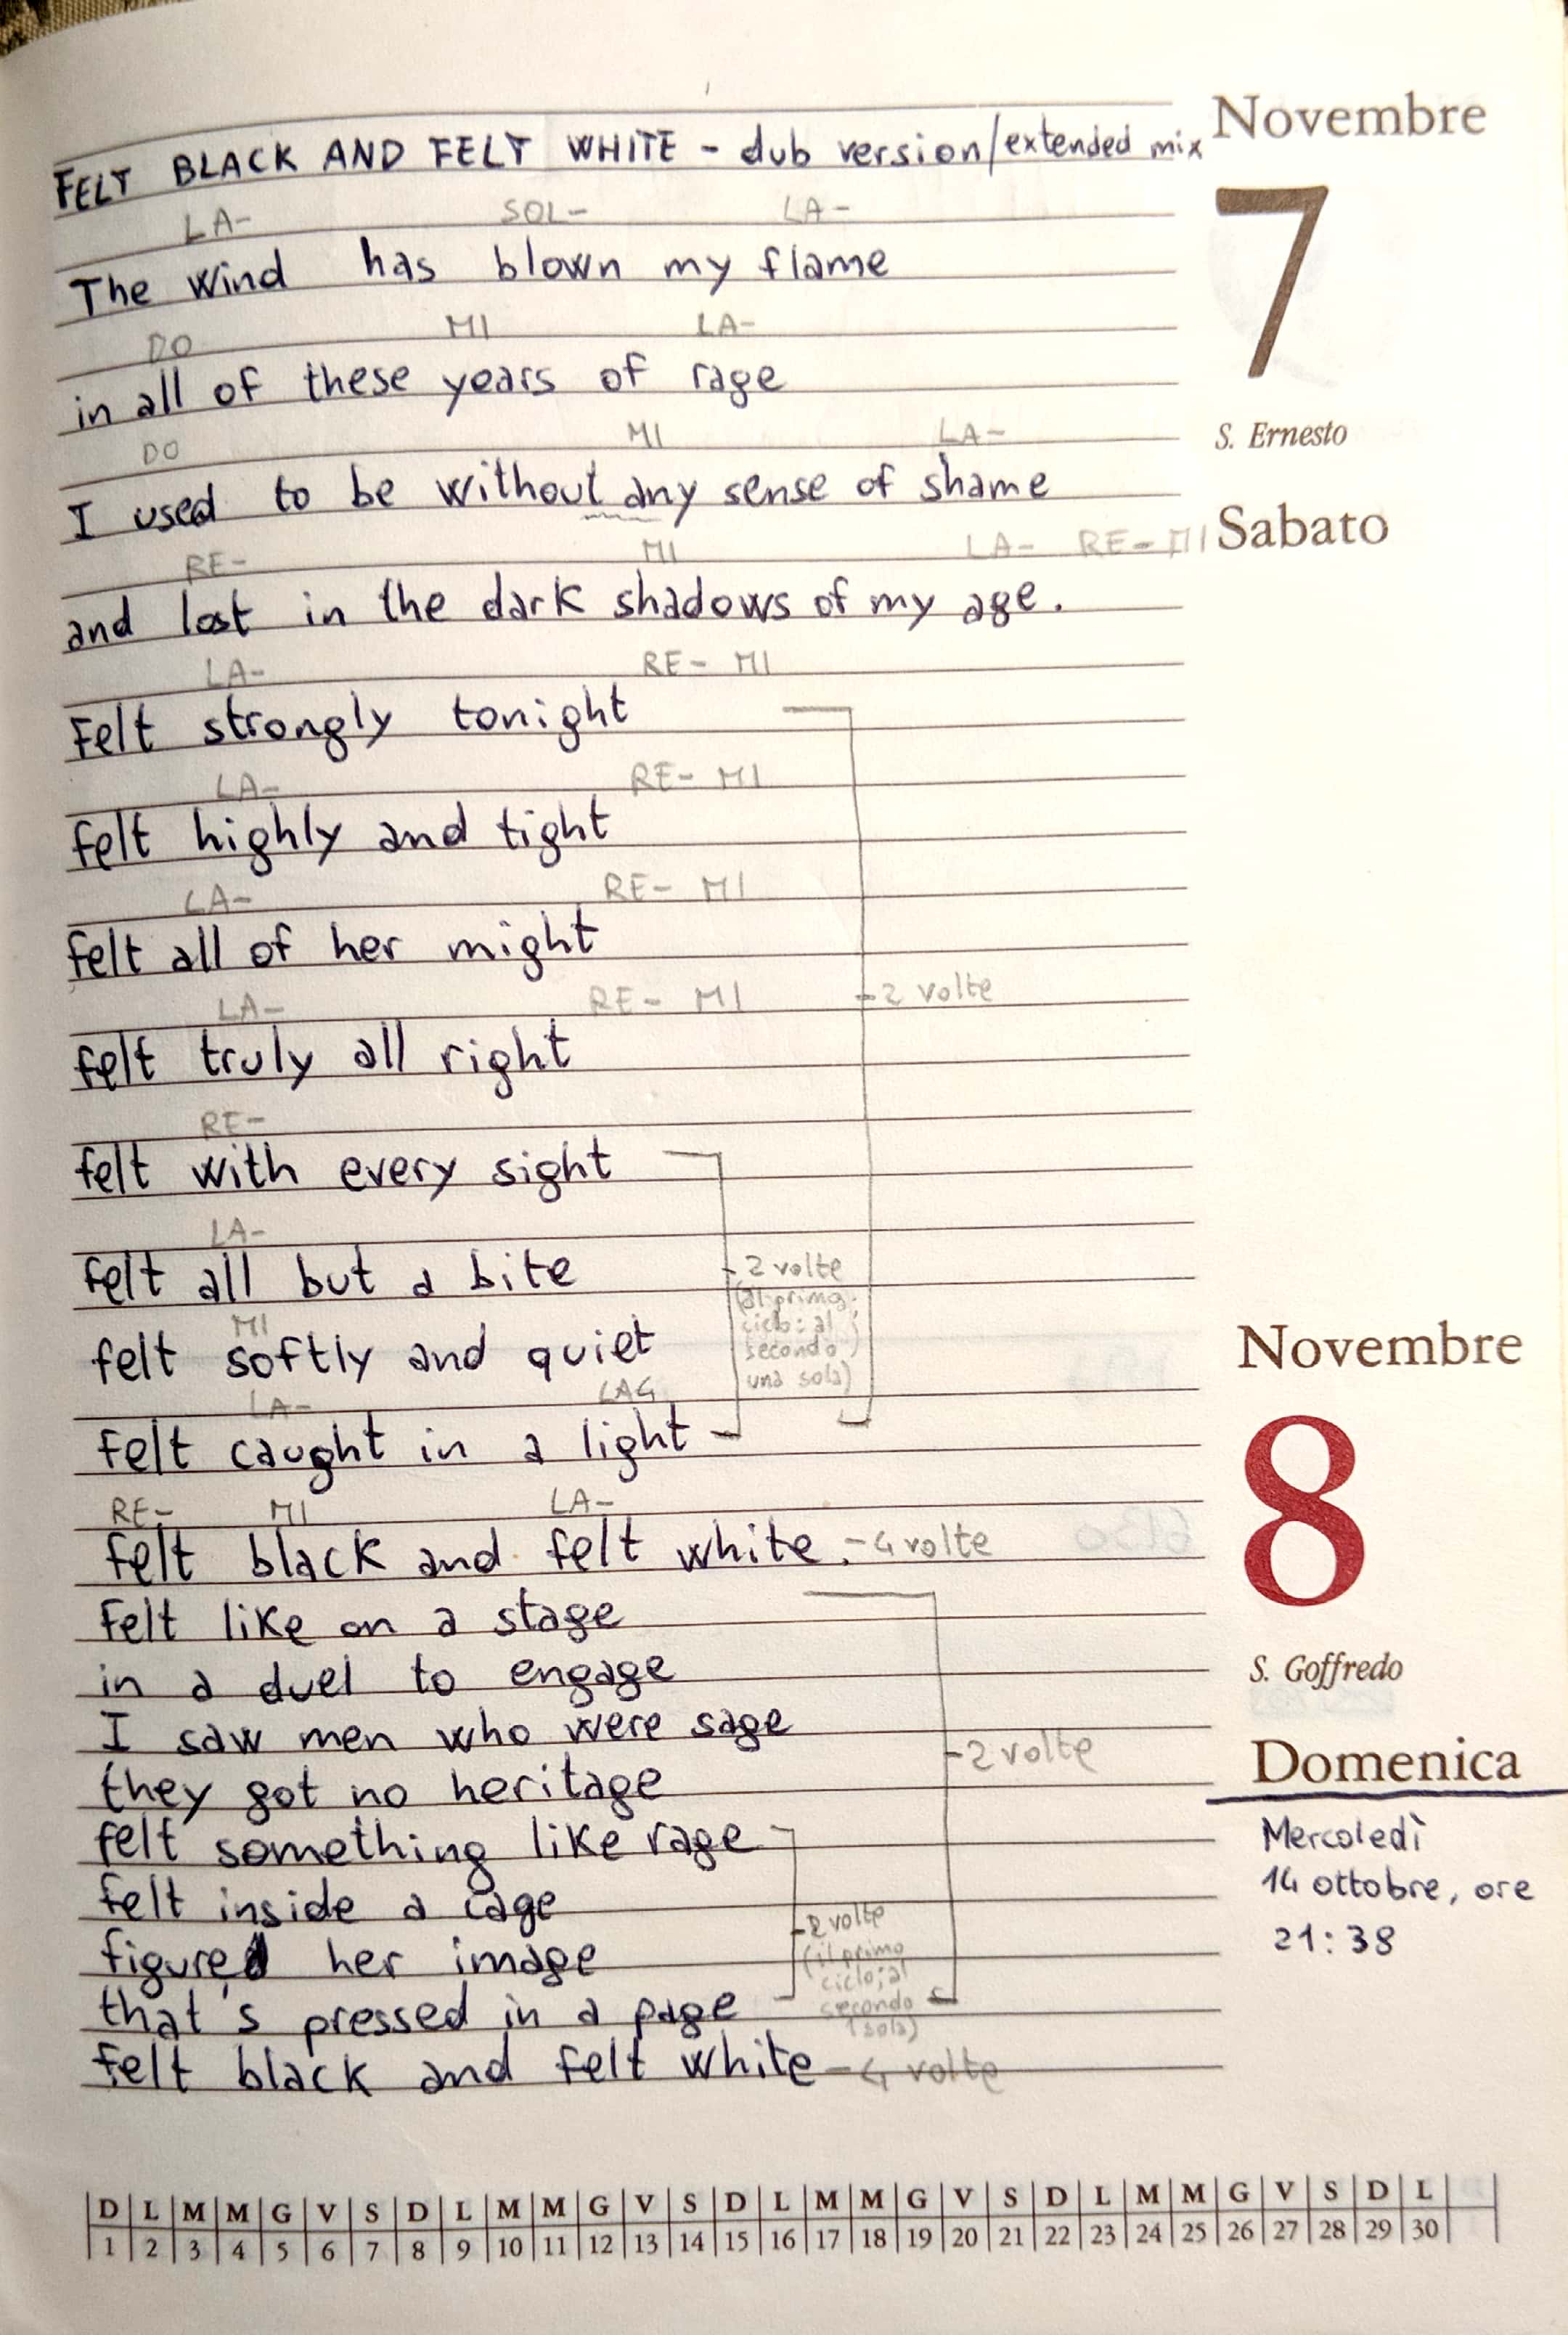 Novembre
FELT BLACK AND FELT WHITE - dub version/extended mix
7
LA- SOL- LA-
The wind has blown my flame
DO MI LA-
in all of these years of rage
S. Ernesto
DO MI LA-
I used to be without any sense of shame
Sabato
RE- MI LA- RE- MI
and lost in the dark shadows of my age.
LA- RE- MI
Felt strongly tonight
LA- RE- MI
felt highly and tight
LA- RE- MI
felt all of her might
LA- RE- MI - 2 volte
felt truly all right
RE-
felt with every sight
LA-
felt all but a bite
- 2 volte
(al primo
ciclo: al
secondo
una sola)
MI
felt softly and quiet
LA- LA4
felt caught in a light
Novembre
8
RE- MI LA-
felt black and felt white. - 4 volte
Felt like on a stage
in a duel to engage
S. Goffredo
I saw men who were sage
- 2 volte
Domenica
they got no heritage
felt something like rage
Mercoledì
14 ottobre, ore
21:38
felt inside a cage
- 2 volte
(il primo
ciclo; al
secondo
1 sola)
figured her image
that's pressed in a page
felt black and felt white - 4 volte
D L M M G V S D L M M G V S D L M M G V S D L M M G V S D L
1 2 3 4 5 6 7 8 9 10 11 12 13 14 15 16 17 18 19 20 21 22 23 24 25 26 27 28 29 30